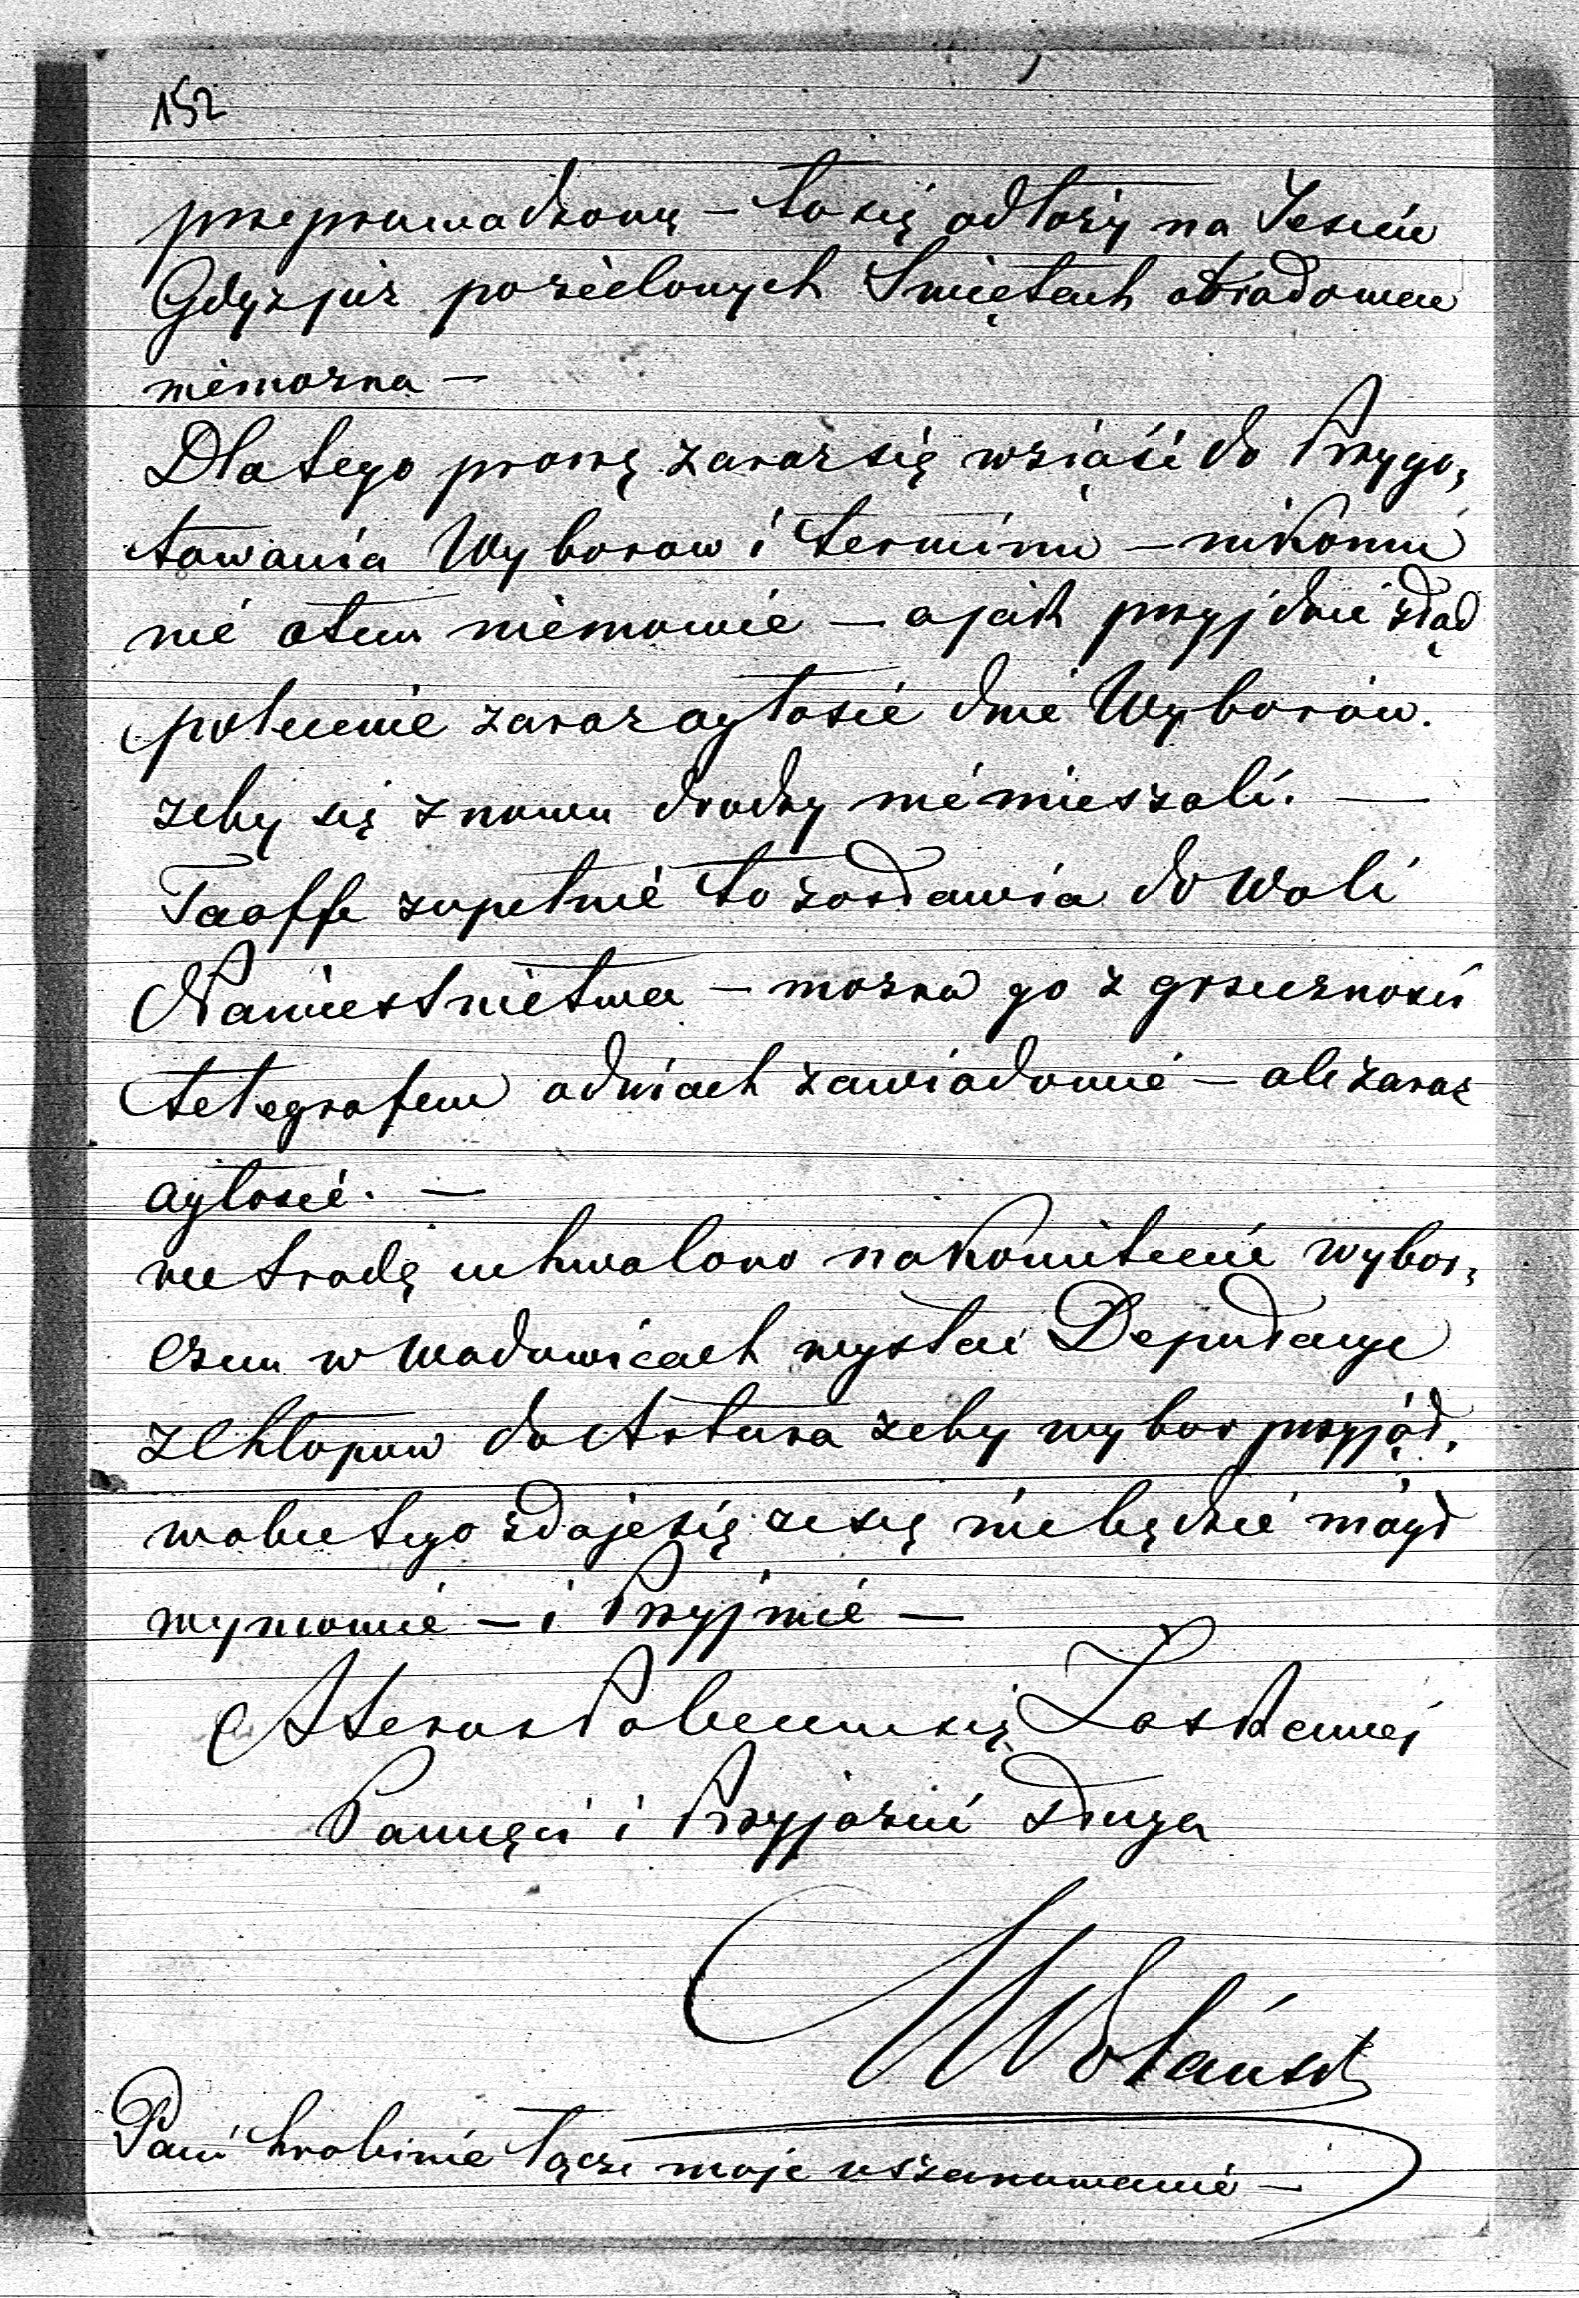 152
przeprowadzony – to się odłoży na Jesień
Gdyż już pozielonych Swiętach obiadowac
niemozna –
Dlatego proszę zaraz się wziąść do Przygo,
towania Wyborow i terminu – nikomu
nié otem niemowić – a jak przyjdzie ztąd
polecenie zaraz ogłosić dnie Wyborów.
zeby się znowu drudzy niémieszali. –
Taaffe zupełnié to zostawia do woli
Namiestnictwa – mozna go z grzecznosci
telegrafem odniach zawiadomić – ale zaraz
ogłosić. –
we srodę uchwalono nakomitecie wybor,
czem w Wadowicach wysłać Deputacye
zchłopow do Artura zeby wybor przyjął.
wobectego zdajesię ze się niebędzie mógł
wymówić – i Przyjmié –
A teraz Polecam się Łaskawej
Pamięci i Przyjazni sługa
Wolański
Pani hrabinie łączę moje uszanowanie –